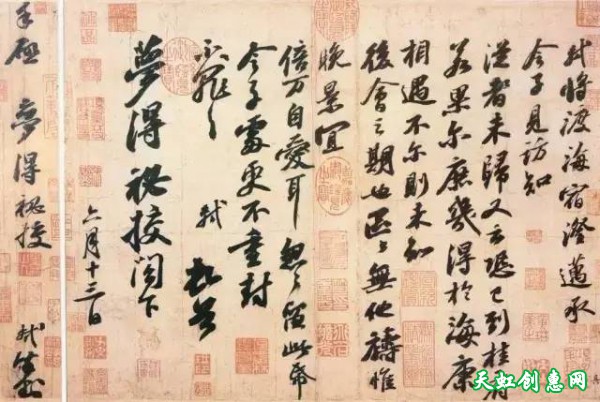 軾將渡海宿澄邁承
令子見訪知
從者未歸又云恐已到桂府
若果爾庶幾得於海康
相遇不爾則未知
後會之期也區〻無他禱惟
晚景宜
倍万自愛耳匆〻留此帋
令子處更不重封
不罪〻 軾 頓首
夢得祕校閣下
六月十三日
手啟 夢得祕校 軾
天虹创惠网